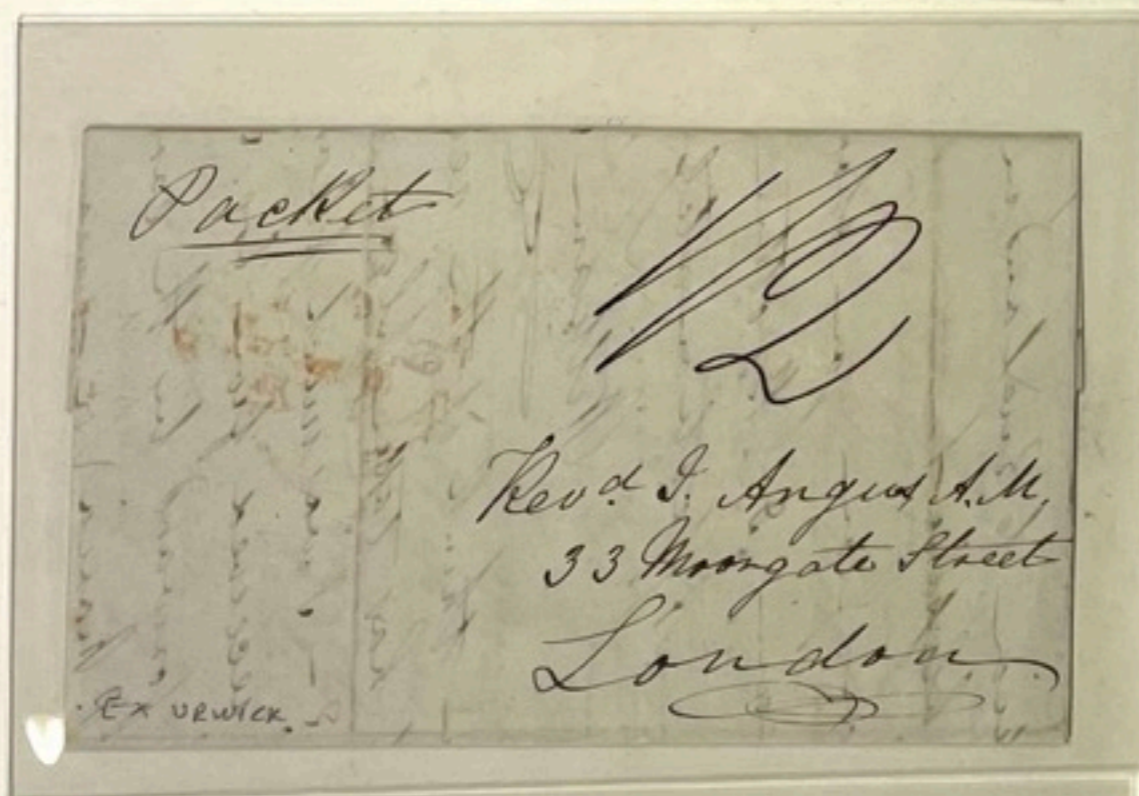 Packet
Revd. J. Angus A.M,
33 Moorgate Street
London.
Ex URWICK.